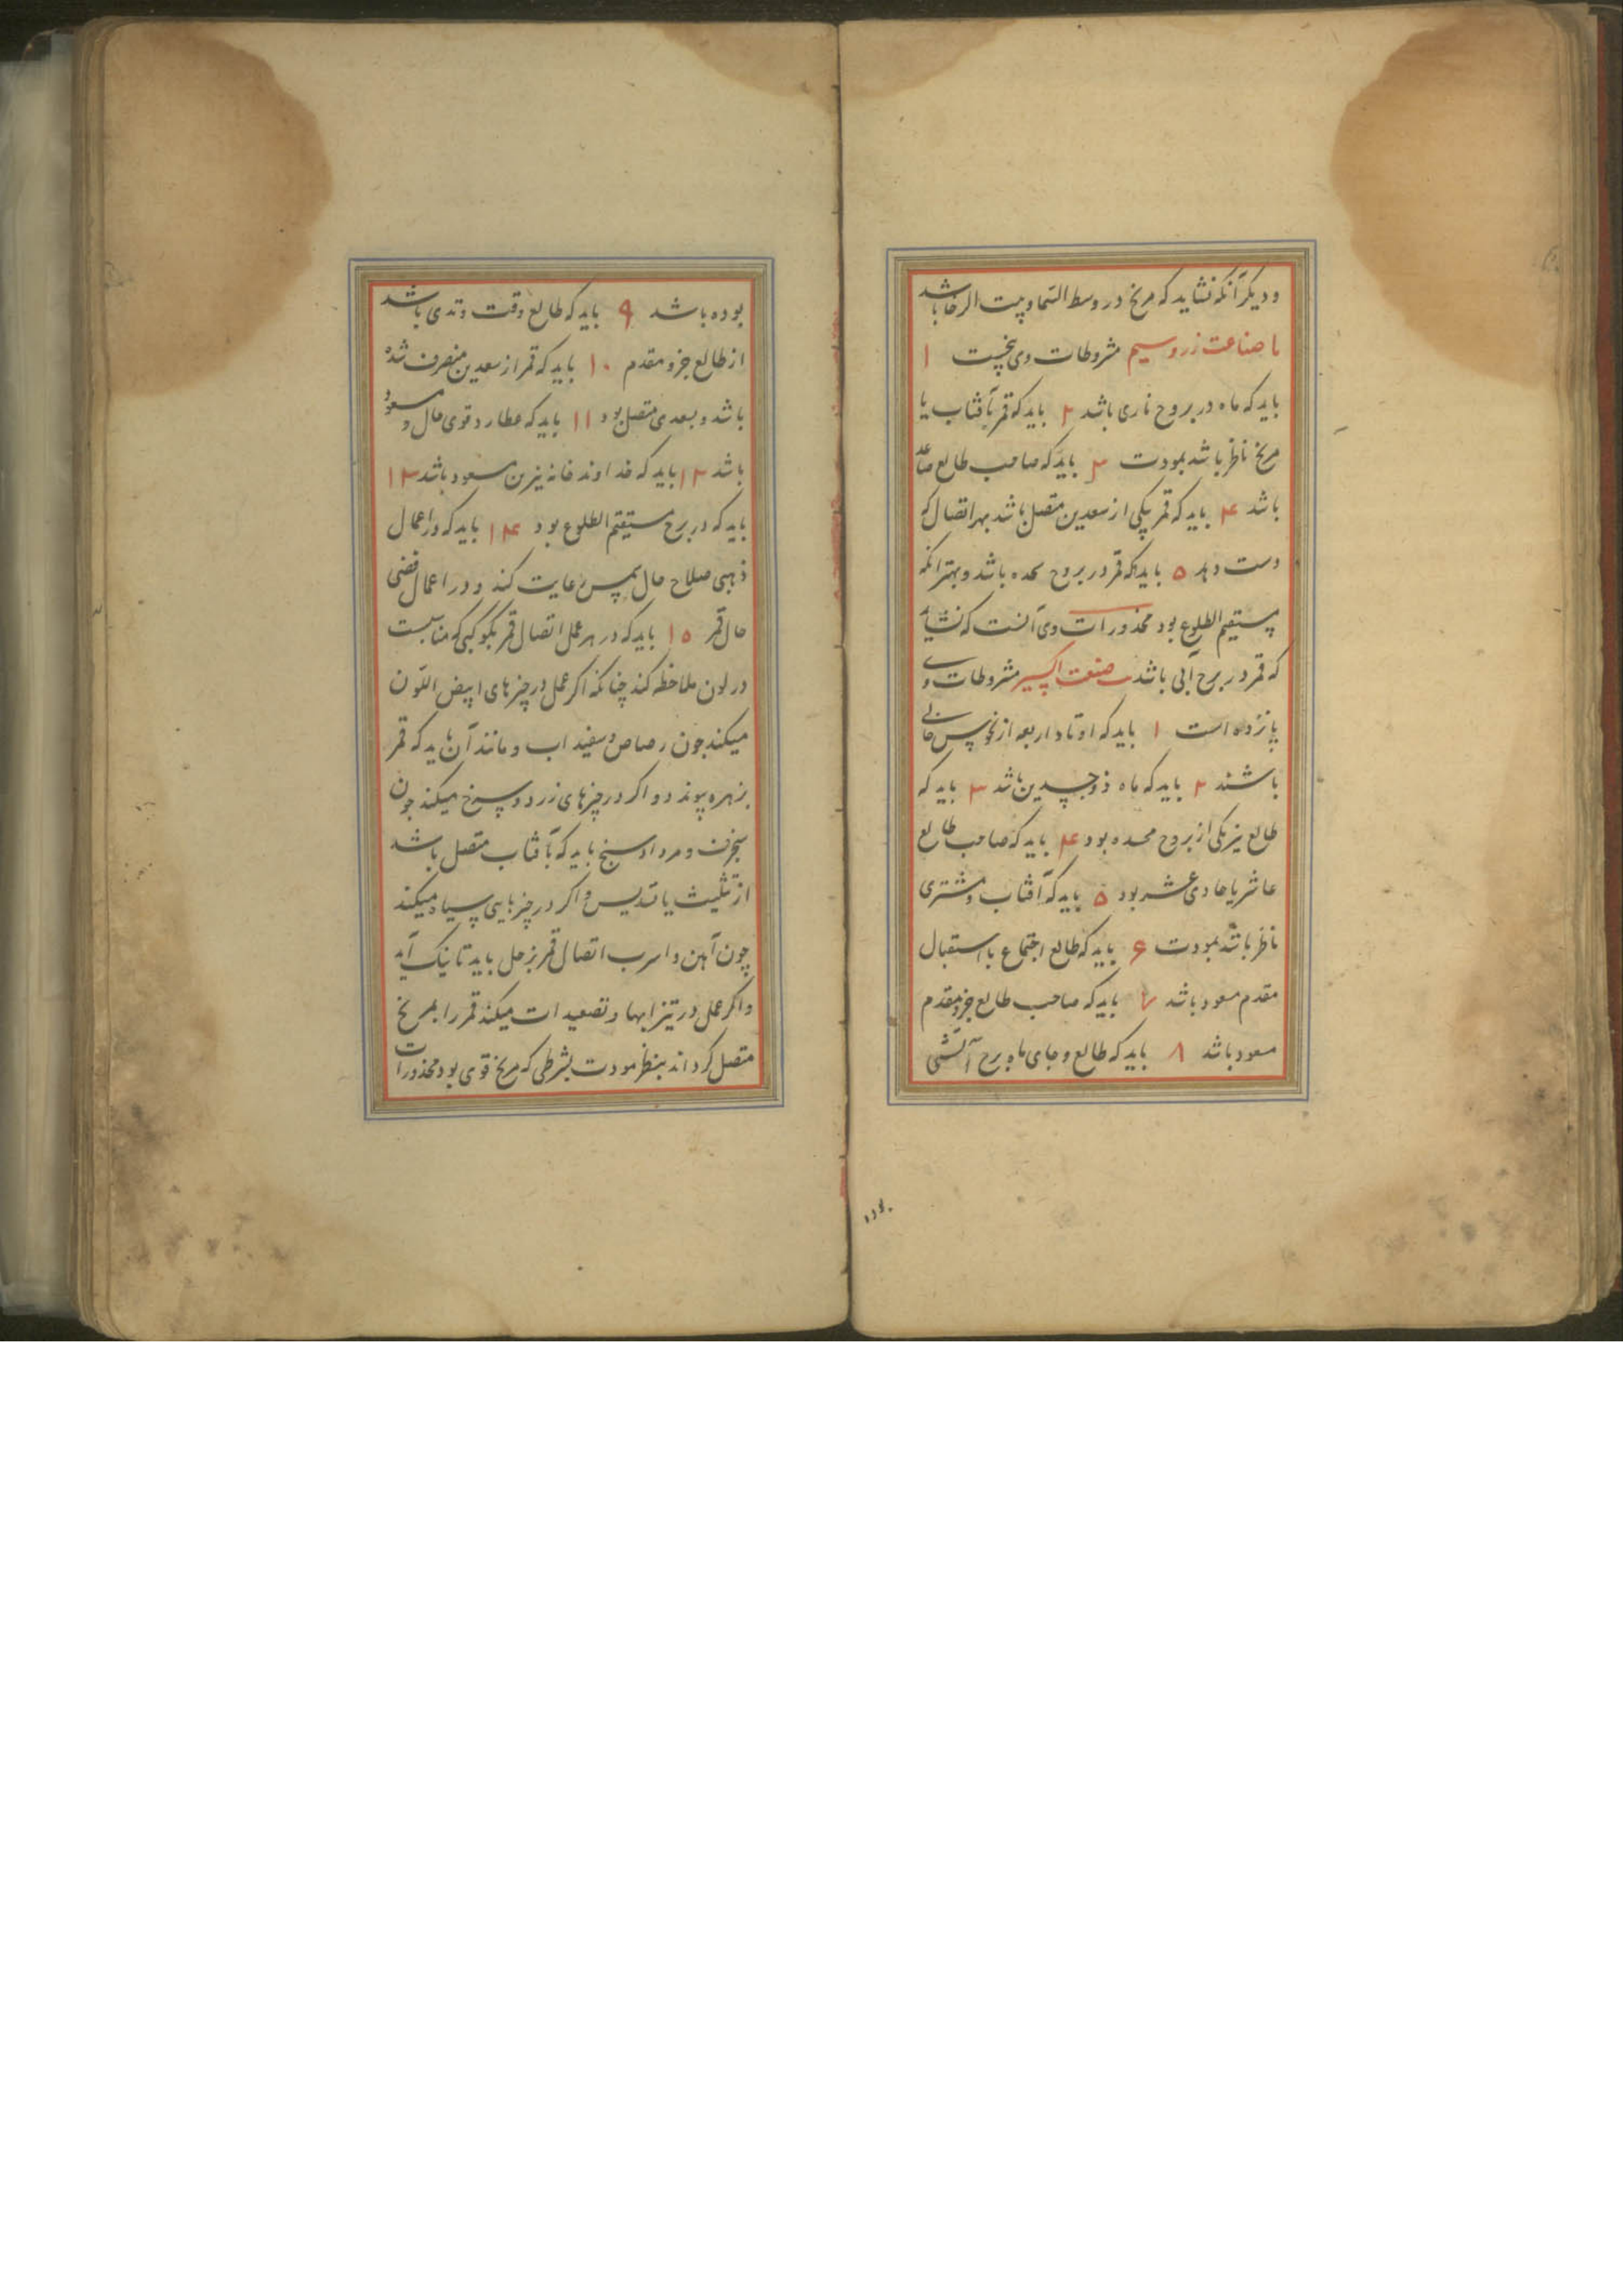 و دیگر آنکه نشاید که مریخ در وسط السما و بیت الرجا باشد
ما صناعت زر و سیم مشروطات وی پنجست ۱
باید که ماه در بروج ناری باشد ۲ باید که قمر بآفتاب یا
مریخ ناظر باشد بمودت ۳ باید که صاحب طالع صاعد
باشد ۴ باید که قمر بیکی از سعدین متصل باشد بهر اتصال که
دست دهد ۵ باید که قمر در بروج محده باشد و بهتر آنکه
مستقیم الطلوع بود محذورات وی آنست که نشاید
که قمر در برج آبی باشد صنعت اکسیر مشروطات وی
پانزده است ۱ باید که اوتاد اربعه از نحوس خالی
باشند ۲ باید که ماه ذوجسدین باشد ۳ باید که
طالع نیز یکی از بروج محسده بود ۴ باید که صاحب طالع
عاشر یا حادی عشر بود ۵ باید که آفتاب و مشتری
ناظر باشد بمودت ۶ باید که طالع اجتماع یا استقبال
مقدم مسعود باشد ۷ باید که صاحب طالع جزو مقدم
مسعود باشد ۸ باید که طالع و جای ماه برج آتشی
بوده باشد ۹ باید که طالع وقت وتدی باشد
از طالع جزو مقدم ۱۰ باید که قمر از سعدین منصرف شده
باشد و بسعدی متصل بود ۱۱ باید که عطارد قوی حال و مسعود
باشد ۱۲ باید که خداوند خانه نیزین مسعود باشد ۱۳
باید که در برج مستقیم الطلوع بود ۱۴ باید که در اعمال
ذهبی صلاح حال شمس رعایت کند و در اعمال فضی
حال قمر ۱۵ باید که در هر عمل اتصال قمر بکوکبی که مناسبت
در لون ملاحظه کند چنانکه اگر عمل در چیزهای ابیض اللون
میکند جون رصاص و سفیداب و مانند آن باید که قمر
بزهره پیوندد و اگر در چیزهای زرد و سرخ میکند جون
سنجرف و مرداسنج باید که بآفتاب متصل باشد
از تثلیث یا تسدیس و اگر در چیزهایی سیاه میکند
چون آهن و اسرب اتصال قمر بزحل باید تا نیک آید
و اگر عمل در تیزابها و تصعیدات میکند قمر را بمریخ
متصل گرداند بنظر مودت بشرطی که مریخ قوی بود محذورات